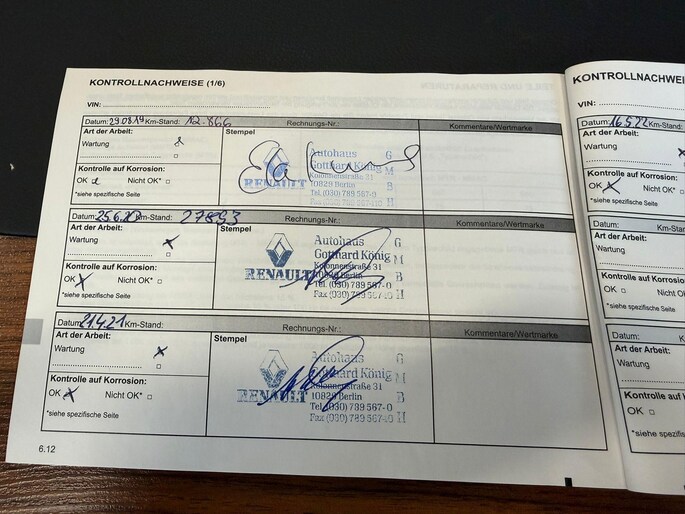 KONTROLLNACHWEISE (1/6)
VIN:
Datum: 29.08.19 Km-Stand: 12.866 Rechnungs-Nr.: Kommentare/Wertmarke
Art der Arbeit: Stempel
Wartung
Kontrolle auf Korrosion:
OK Nicht OK*
*siehe spezifische Seite
RENAULT
Autohaus G
Gotthard König M
Kolonnenstraße 31
10829 Berlin B
Tel. (030) 789 567-0
Datum: Km-Stand: 27893 Rechnungs-Nr.: Kommentare/Wertmarke
Art der Arbeit: Stempel
Wartung x
Kontrolle auf Korrosion:
OK x Nicht OK*
*siehe spezifische Seite
RENAULT
Autohaus G
Gotthard König M
Kolonnenstraße 31
10829 Berlin B
Tel. (030) 789 567-0
Fax (030) 789 567-40 H
Datum: 21.4.21 Km-Stand: Rechnungs-Nr.: Kommentare/Wertmarke
Art der Arbeit: Stempel
Wartung x
Kontrolle auf Korrosion:
OK x Nicht OK*
*siehe spezifische Seite
RENAULT
Autohaus G
Gotthard König M
Kolonnenstraße 31
10829 Berlin B
Tel. (030) 789 567-0
Fax (030) 789 567-40 H
6.12
KONTROLLNACHWEI
VIN:
Datum: 16.5.22 Km-Stand:
Art der Arbeit:
Wartung
Kontrolle auf Korrosion:
OK x Nicht OK
*siehe spezifische Seite
Datum: Km-Star
Art der Arbeit:
Wartung
Kontrolle auf Korrosion:
OK Nicht O
*siehe spezifische Seite
Datum: K
Art der Arbeit:
Wartung
Kontrolle auf Korrosi
OK Nich
*siehe spezifische Sei